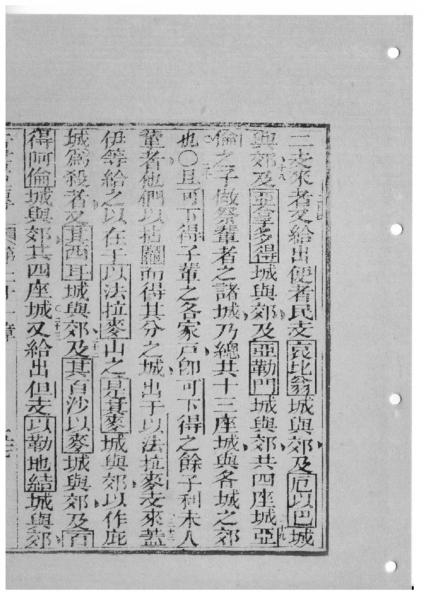 二支來者又給出便者民支哀比翁城與郊及厄以巴城
與郊及亞拿多得城與郊及亞勒門城與郊共四座城亞
倫之子做祭輩者之諸城乃總共十三座城與各城之郊
也〇且可下得子輩之各家戶即可下得之餘子利未人
輩者他們以拈鬮而得其分之城出于以法拉麥支來蓋
伊等給之以在于以法拉麥山之是其麥城與郊以作庇
城為殺者又其西耳城與郊及其百沙以麥城與郊及百
得阿倫城與郊共四座城又給出但支以勒地結城與郊